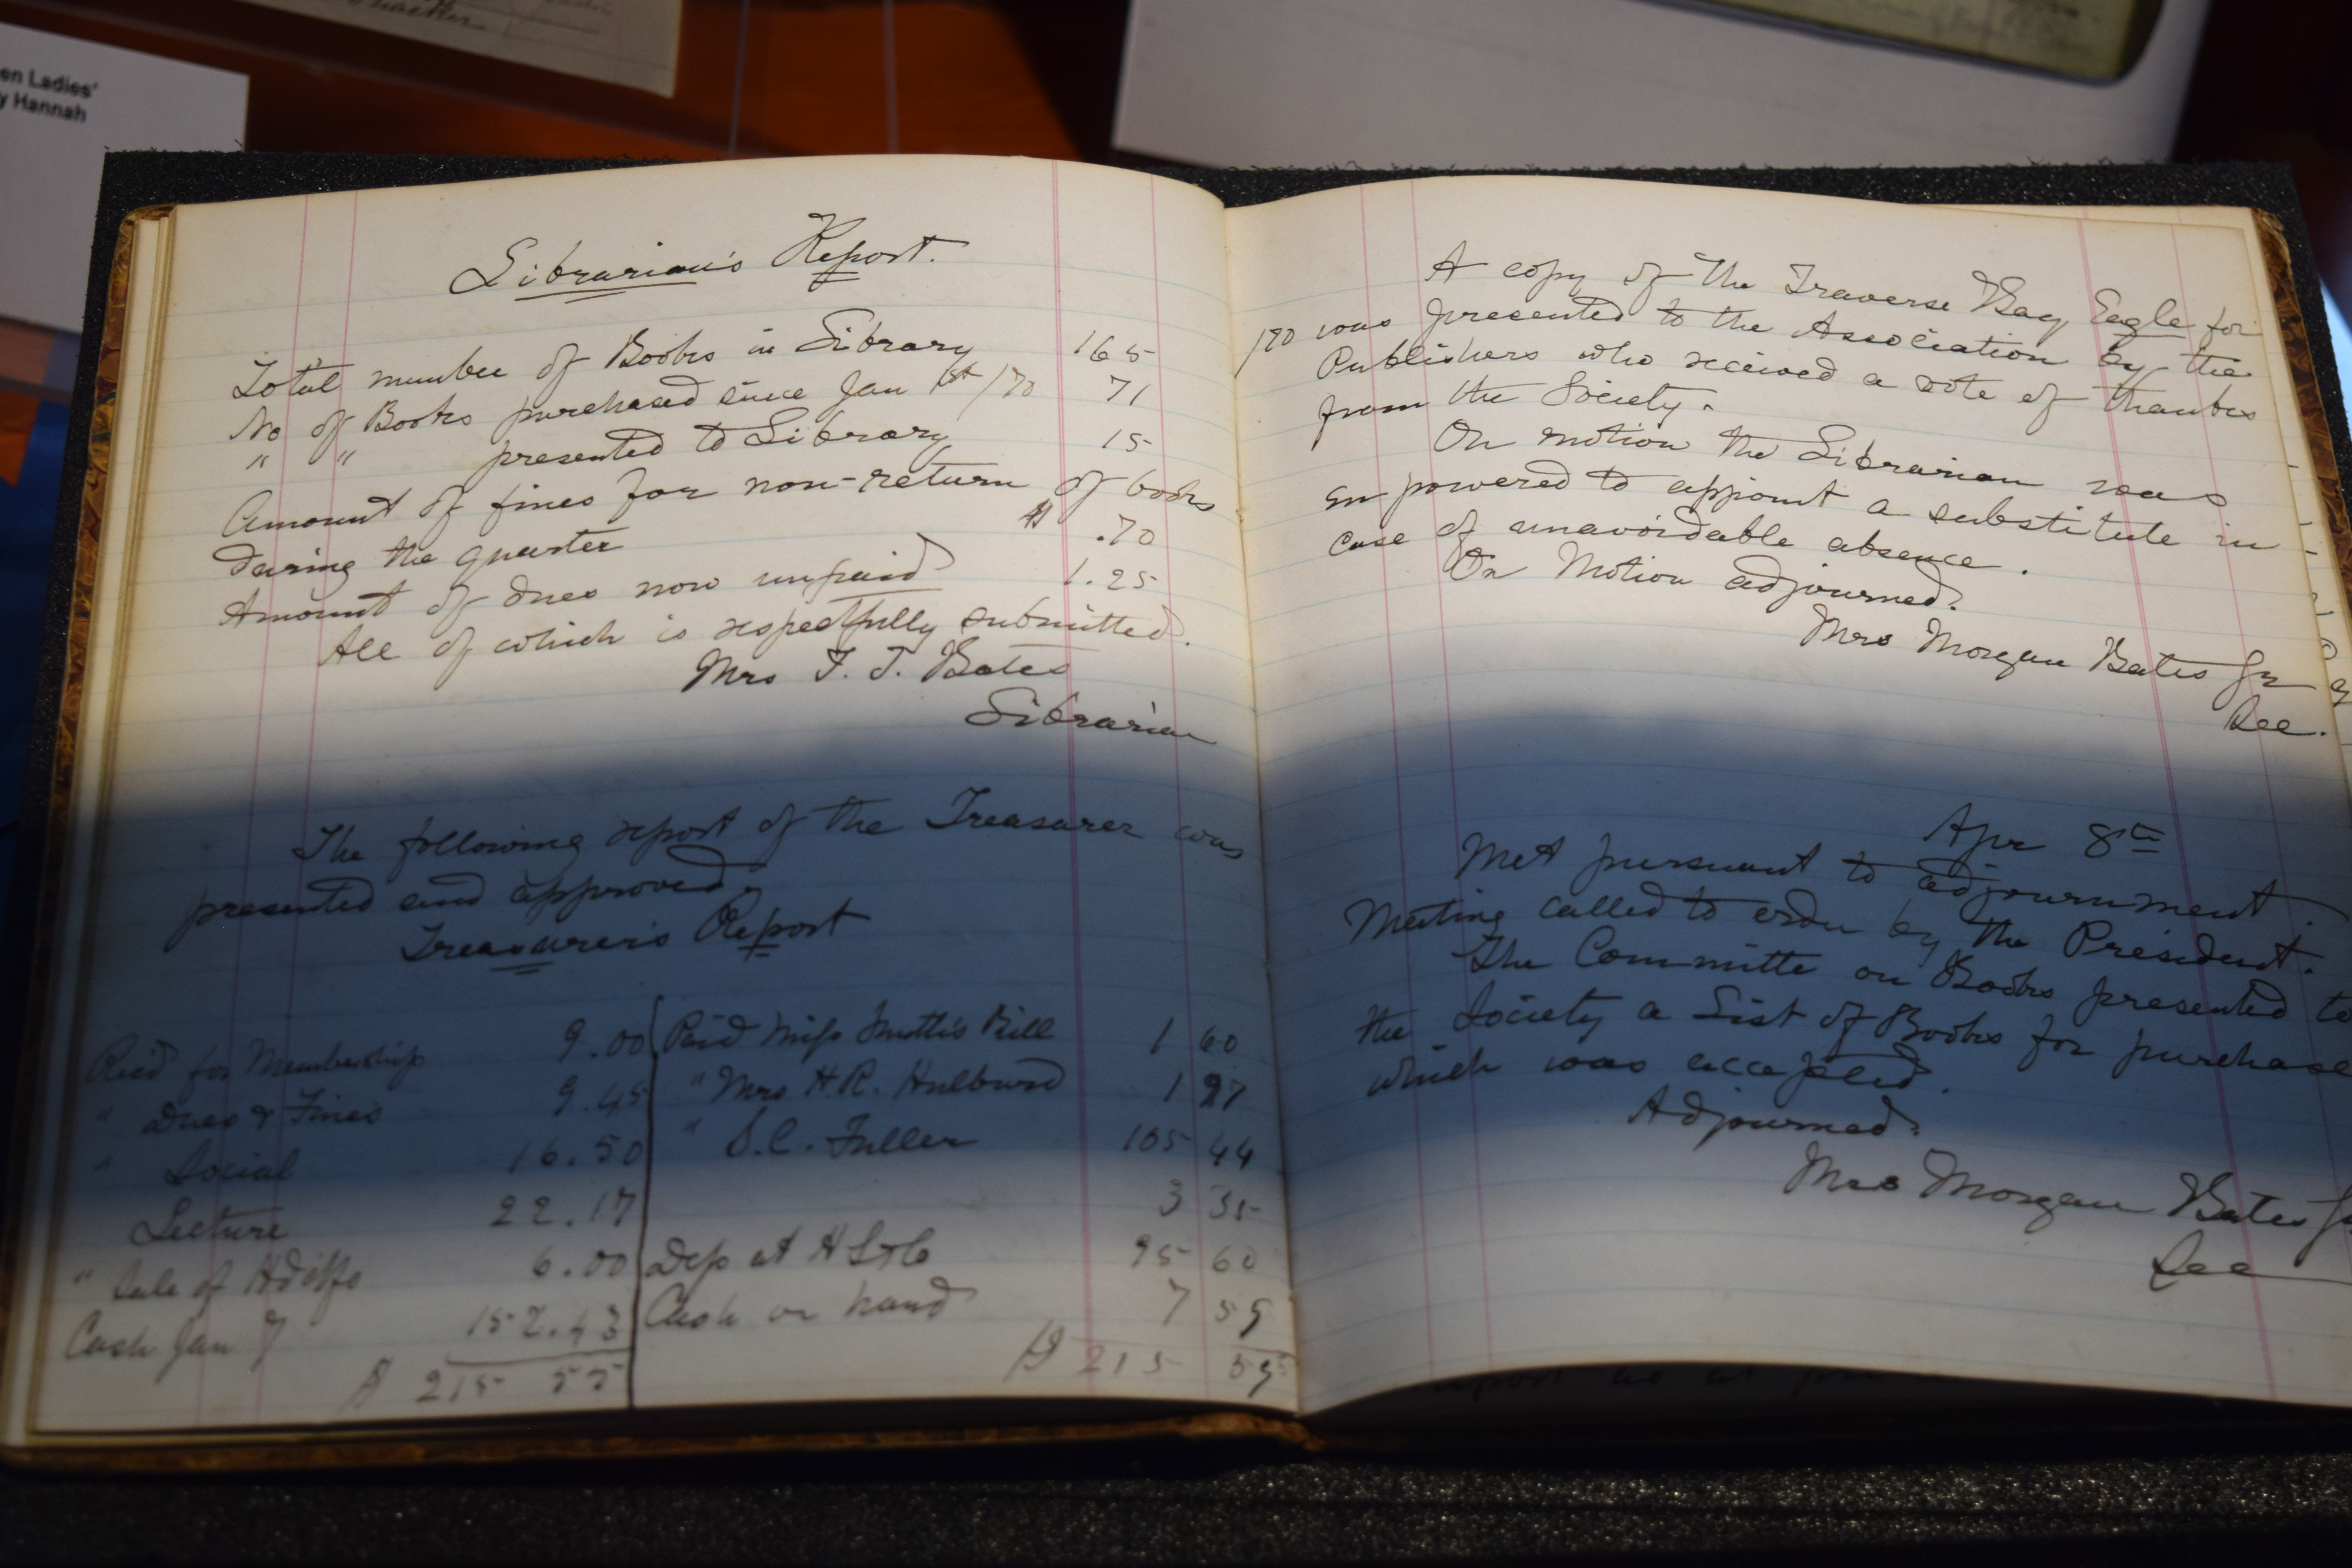 en Ladies'
y Hannah
Librarian's Report.
Total number of Books in Library 165
No of Books purchased since Jan 1st /70 71
" " presented to Library 15
Amount of fines for non-return of books
during the quarter $ .70
Amount of dues now unpaid 1.25
All of which is respectfully submitted.
Mrs T. T. Bates
Librarian
The following report of the Treasurer was
presented and approved.
Treasurer's Report
Recd for Membership 9.00 Paid Miss Bill 1 60
" Dues & Fines 9.45 " Mrs H.R. Hulburd 1 97
" Social 16.50 " S.C. Fuller 105 44
Lecture 22.17 3 35
" Sale of Hdkfs 6.00 Dep at H L & Co 95 60
Cash Jan 7 152.43 Cash on hand 7 59
$ 215 55 $ 215 55
A copy of the Traverse Bay Eagle for
1870 was presented to the Association by the
Publishers who received a vote of thanks
from the Society.
On motion the Librarian was
empowered to appoint a substitute in
case of unavoidable absence.
On Motion adjourned.
Mrs Morgan Bates Jr
Sec.
Apr 8th
Met pursuant to adjournment.
Meeting called to order by the President.
The Committe on Books presented to
the Society a List of Books for purchase
which was accepted.
Adjourned.
Mrs Morgan Bates J
Sec